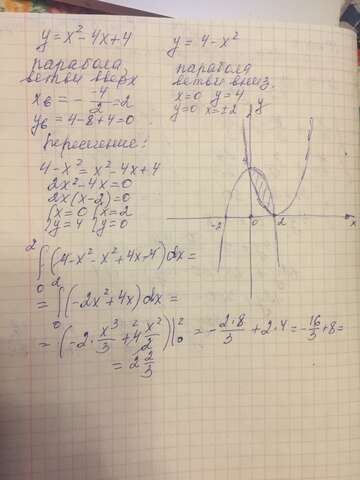 y = x² - 4x + 4
парабола,
ветви вверх
xв = - -4/2 = 2
yв = 4 - 8 + 4 = 0
y = 4 - x²
парабола
ветви вниз.
x=0 y=4
y=0 x=±2
Пересечение:
4 - x² = x² - 4x + 4
2x² - 4x = 0
2x(x-2) = 0
{x=0 {x=2
{y=4 {y=0
y
4
-2 0 2 x
2
∫(4 - x² - x² + 4x - 4)dx =
0
2
= ∫(-2x² + 4x)dx =
0
= (-2·x³/3 + 4 x²/2)|₀² = - 2·8/3 + 2·4 = - 16/3 + 8 =
= 2 2/3